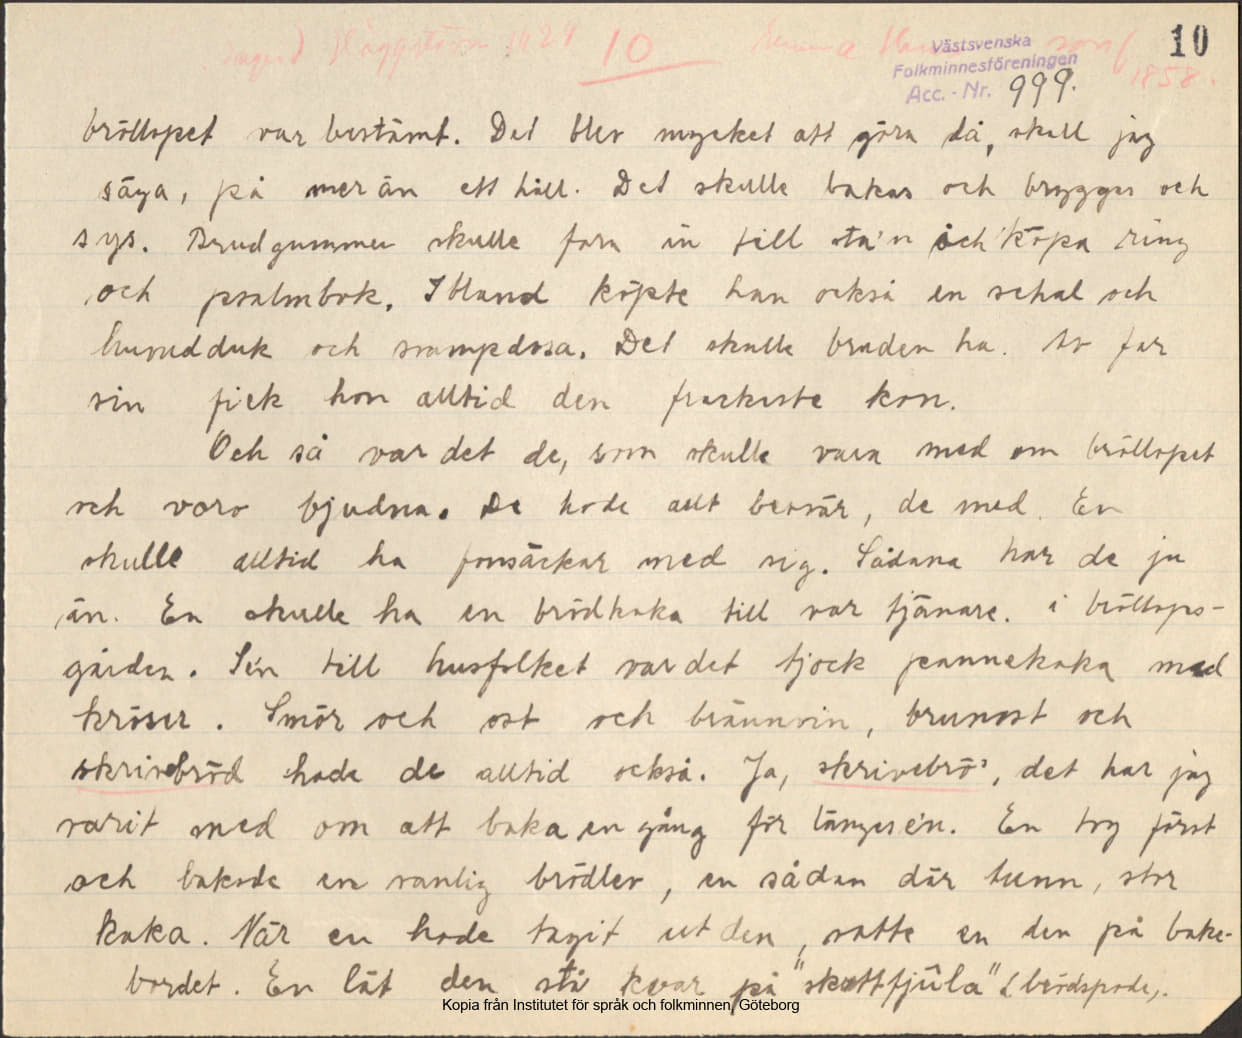 Ingrid Häggström 1929 10 Emma 10
Västsvenska
Folkminnesföreningen
1858.
Acc. - Nr. 999.
bröllopet var bestämt. Det blev mycket att göra då, skall jag
säga, på mer än ett håll. Det skulle bakas och bryggas och
sys. Brudgummen skulle fara in till sta'n och köpa ring
och psalmbok. Ibland köpte han också en schal och
huvudduk och svampdosa. Det skulle bruden ha. Av far
sin fick hon alltid den frackaste kon.
Och så var det de, som skulle vara med om bröllopet
och voro bjudna. De hade allt besvär, de med. En
skulle alltid ha fonsäckar med sig. Sådana har de ju
än. En skulle ha en brödkaka till var tjänare i bröllops-
gården. Sén till husfolket var det tjock pannekaka med
kröser. Smör och ost och brännvin, brunost och
skrivebröd hade de alltid också. Ja, skrivebrö', det har jag
varit med om att baka en gång för längesén. En tog först
och bakade en vanlig brödlev, en sådan där tunn, stor
kaka. När en hade tagit ut den, satte en den på bake-
bordet. En lät den stå kvar på "skottfjöla" (brödspade).
Kopia från Institutet för språk och folkminnen, Göteborg